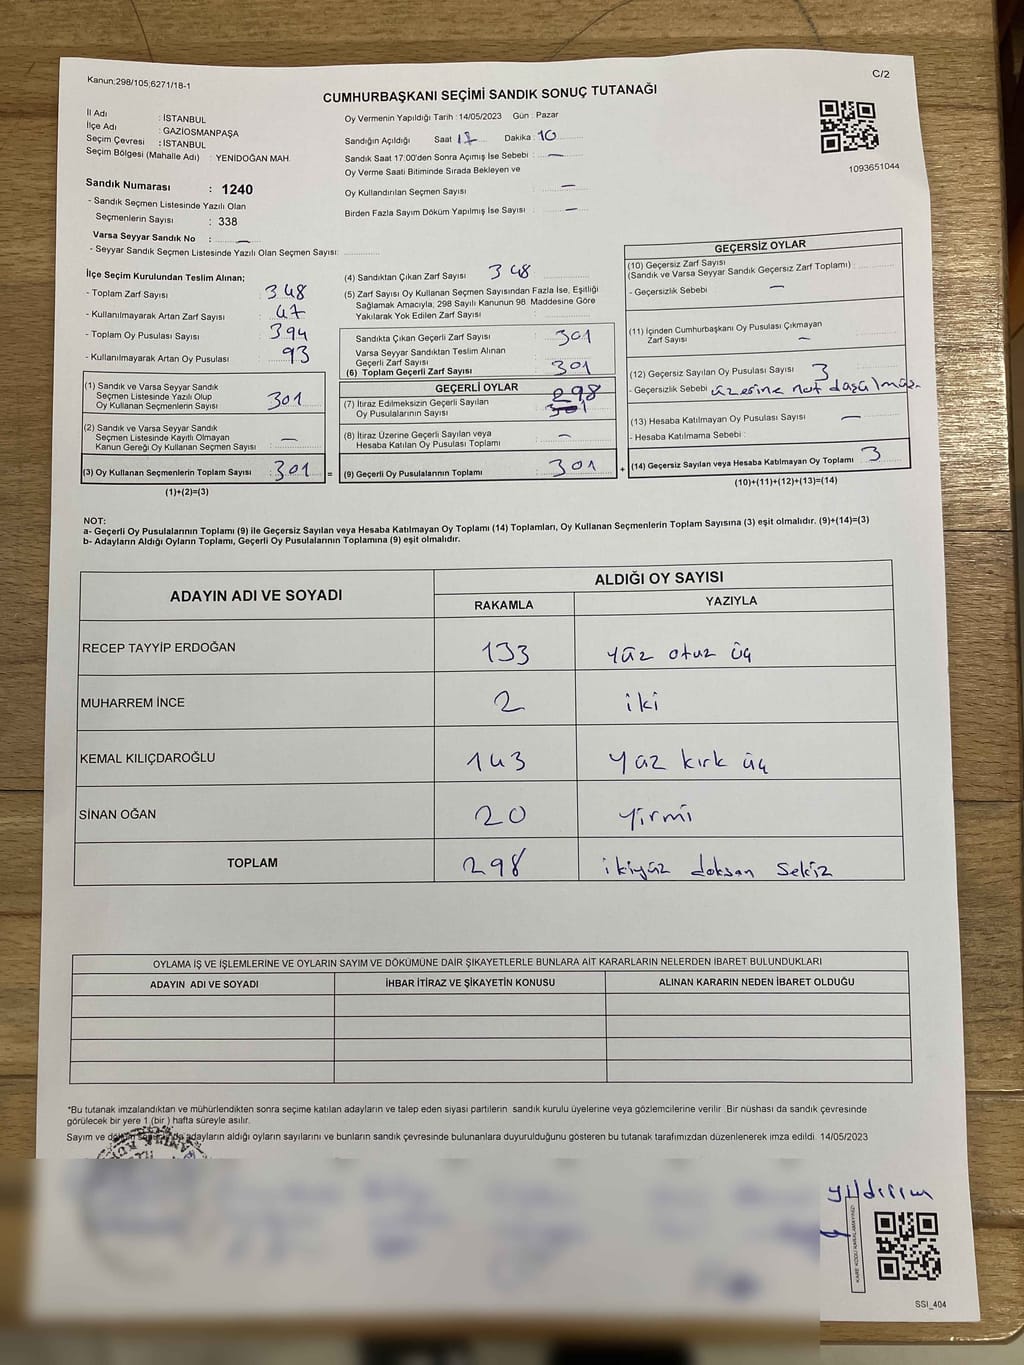 Kanun:298/105;6271/18-1
C/2
CUMHURBAŞKANI SEÇİMİ SANDIK SONUÇ TUTANAĞI
İl Adı : İSTANBUL
İlçe Adı : GAZİOSMANPAŞA
Seçim Çevresi : İSTANBUL
Seçim Bölgesi (Mahalle Adı) : YENİDOĞAN MAH.
Oy Vermenin Yapıldığı Tarih : 14/05/2023 Gün : Pazar
Sandığın Açıldığı Saat 17 Dakika : 10
Sandık Saat 17:00'den Sonra Açımış İse Sebebi : —
Oy Verme Saati Bitiminde Sırada Bekleyen ve
Oy Kullandırılan Seçmen Sayısı : —
Birden Fazla Sayım Döküm Yapılmış İse Sayısı : —
1093651044
Sandık Numarası : 1240
- Sandık Seçmen Listesinde Yazılı Olan
Seçmenlerin Sayısı : 338
Varsa Seyyar Sandık No : —
- Seyyar Sandık Seçmen Listesinde Yazılı Olan Seçmen Sayısı:
İlçe Seçim Kurulundan Teslim Alınan;
- Toplam Zarf Sayısı : 348
- Kullanılmayarak Artan Zarf Sayısı : 47
- Toplam Oy Pusulası Sayısı : 394
- Kullanılmayarak Artan Oy Pusulası : 93
(1) Sandık ve Varsa Seyyar Sandık
Seçmen Listesinde Yazılı Olup
Oy Kullanan Seçmenlerin Sayısı : 301
(2) Sandık ve Varsa Seyyar Sandık
Seçmen Listesinde Kayıtlı Olmayan
Kanun Gereği Oy Kullanan Seçmen Sayısı : —
(3) Oy Kullanan Seçmenlerin Toplam Sayısı : 301 =
(1)+(2)=(3)
(4) Sandıktan Çıkan Zarf Sayısı : 348
(5) Zarf Sayısı Oy Kullanan Seçmen Sayısından Fazla İse, Eşitliği
Sağlamak Amacıyla, 298 Sayılı Kanunun 98. Maddesine Göre
Yakılarak Yok Edilen Zarf Sayısı :
Sandıkta Çıkan Geçerli Zarf Sayısı : 301
Varsa Seyyar Sandıktan Teslim Alınan
Geçerli Zarf Sayısı :
(6) Toplam Geçerli Zarf Sayısı : 301
GEÇERLİ OYLAR
(7) İtiraz Edilmeksizin Geçerli Sayılan 298
Oy Pusulalarının Sayısı : 301
(8) İtiraz Üzerine Geçerli Sayılan veya
Hesaba Katılan Oy Pusulası Toplamı : —
(9) Geçerli Oy Pusulalarının Toplamı : 301 +
GEÇERSİZ OYLAR
(10) Geçersiz Zarf Sayısı
(Sandık ve Varsa Seyyar Sandık Geçersiz Zarf Toplamı) :
- Geçersizlik Sebebi : —
(11) İçinden Cumhurbaşkanı Oy Pusulası Çıkmayan
Zarf Sayısı : —
(12) Geçersiz Sayılan Oy Pusulası Sayısı : 3
- Geçersizlik Sebebi : üzerine not düşülmüş.
(13) Hesaba Katılmayan Oy Pusulası Sayısı : —
- Hesaba Katılmama Sebebi :
(14) Geçersiz Sayılan veya Hesaba Katılmayan Oy Toplamı : 3
(10)+(11)+(12)+(13)=(14)
NOT:
a- Geçerli Oy Pusulalarının Toplamı (9) ile Geçersiz Sayılan veya Hesaba Katılmayan Oy Toplamı (14) Toplamları, Oy Kullanan Seçmenlerin Toplam Sayısına (3) eşit olmalıdır. (9)+(14)=(3)
b- Adayların Aldığı Oyların Toplamı, Geçerli Oy Pusulalarının Toplamına (9) eşit olmalıdır.
ADAYIN ADI VE SOYADI ALDIĞI OY SAYISI
RAKAMLA YAZIYLA
RECEP TAYYİP ERDOĞAN 133 yüz otuz üç
MUHARREM İNCE 2 iki
KEMAL KILIÇDAROĞLU 143 yüz kırk üç
SİNAN OĞAN 20 yirmi
TOPLAM 298 ikiyüz doksan sekiz
OYLAMA İŞ VE İŞLEMLERİNE VE OYLARIN SAYIM VE DÖKÜMÜNE DAİR ŞİKAYETLERLE BUNLARA AİT KARARLARIN NELERDEN İBARET BULUNDUKLARI
ADAYIN ADI VE SOYADI İHBAR İTİRAZ VE ŞİKAYETİN KONUSU ALINAN KARARIN NEDEN İBARET OLDUĞU
*Bu tutanak imzalandıktan ve mühürlendikten sonra seçime katılan adayların ve talep eden siyasi partilerin sandık kurulu üyelerine veya gözlemcilerine verilir. Bir nüshası da sandık çevresinde
görülecek bir yere 1 (bir ) hafta süreyle asılır.
Sayım ve adayların aldığı oyların sayılarını ve bunların sandık çevresinde bulunanlara duyurulduğunu gösteren bu tutanak tarafımızdan düzenlenerek imza edildi. 14/05/2023
yıldırım
SSI_404